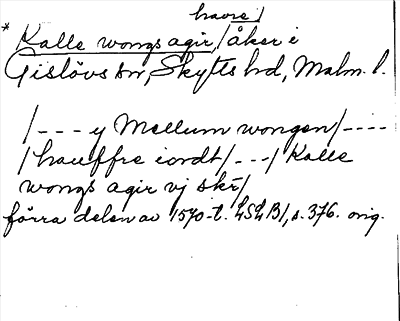 havre/
* Kalle wongs agir, / åker i
Gislövs sn, Skytts hd, Malm. l.
/--- y Mellum wongen/----
/hauffre iordt/---/Kalle
wongs agir vj skr/
förra delen av 1570-t. LSLB1, s. 376. orig.